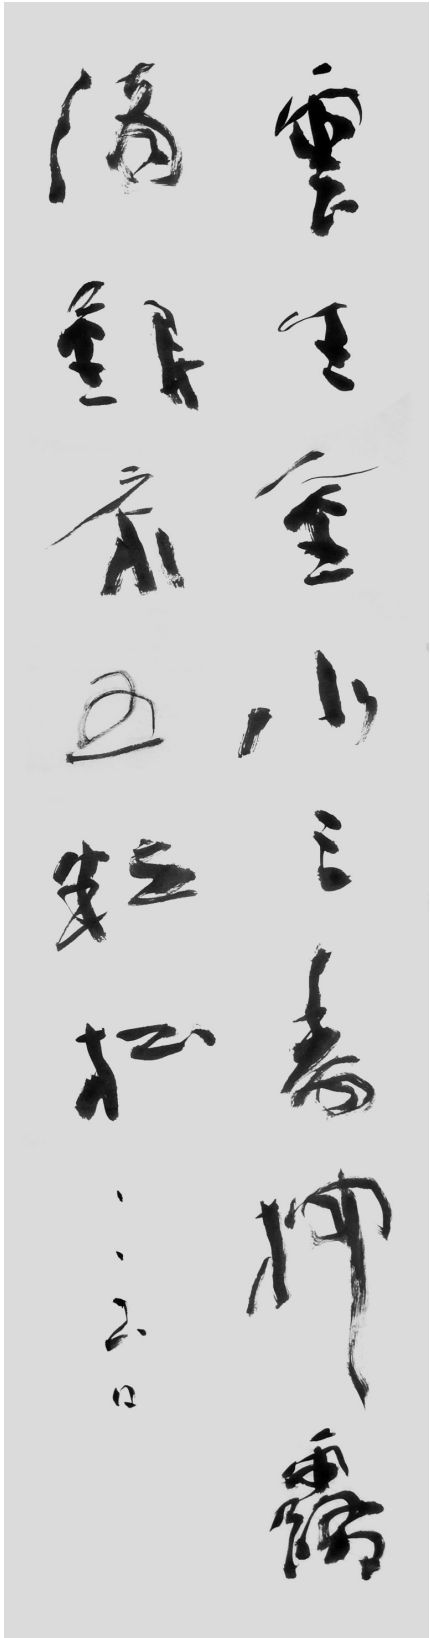 雲生金水三春柳露
滴銀床五粒松